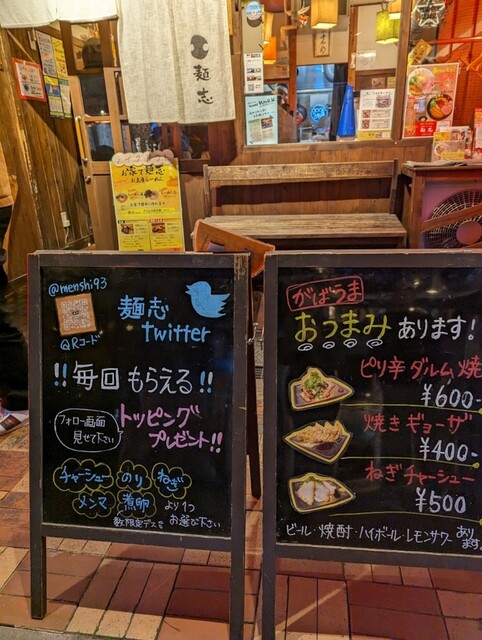 麺志
お家で麺志
@menshi93
QRコード
麺志
twitter
!!毎回もらえる!!
フォロー画面
見せて下さい
トッピング
プレゼント!!
チャーシュー のり ねぎ
メンマ 煮卵 より1つ
お選び下さい
数限定デス
がばうま
おつまみあります!
ピリ辛ダルム焼
¥600-
焼きギョーザ
¥400-
ねぎチャーシュー
¥500
ビール・焼酎・ハイボール・レモンサワー あります